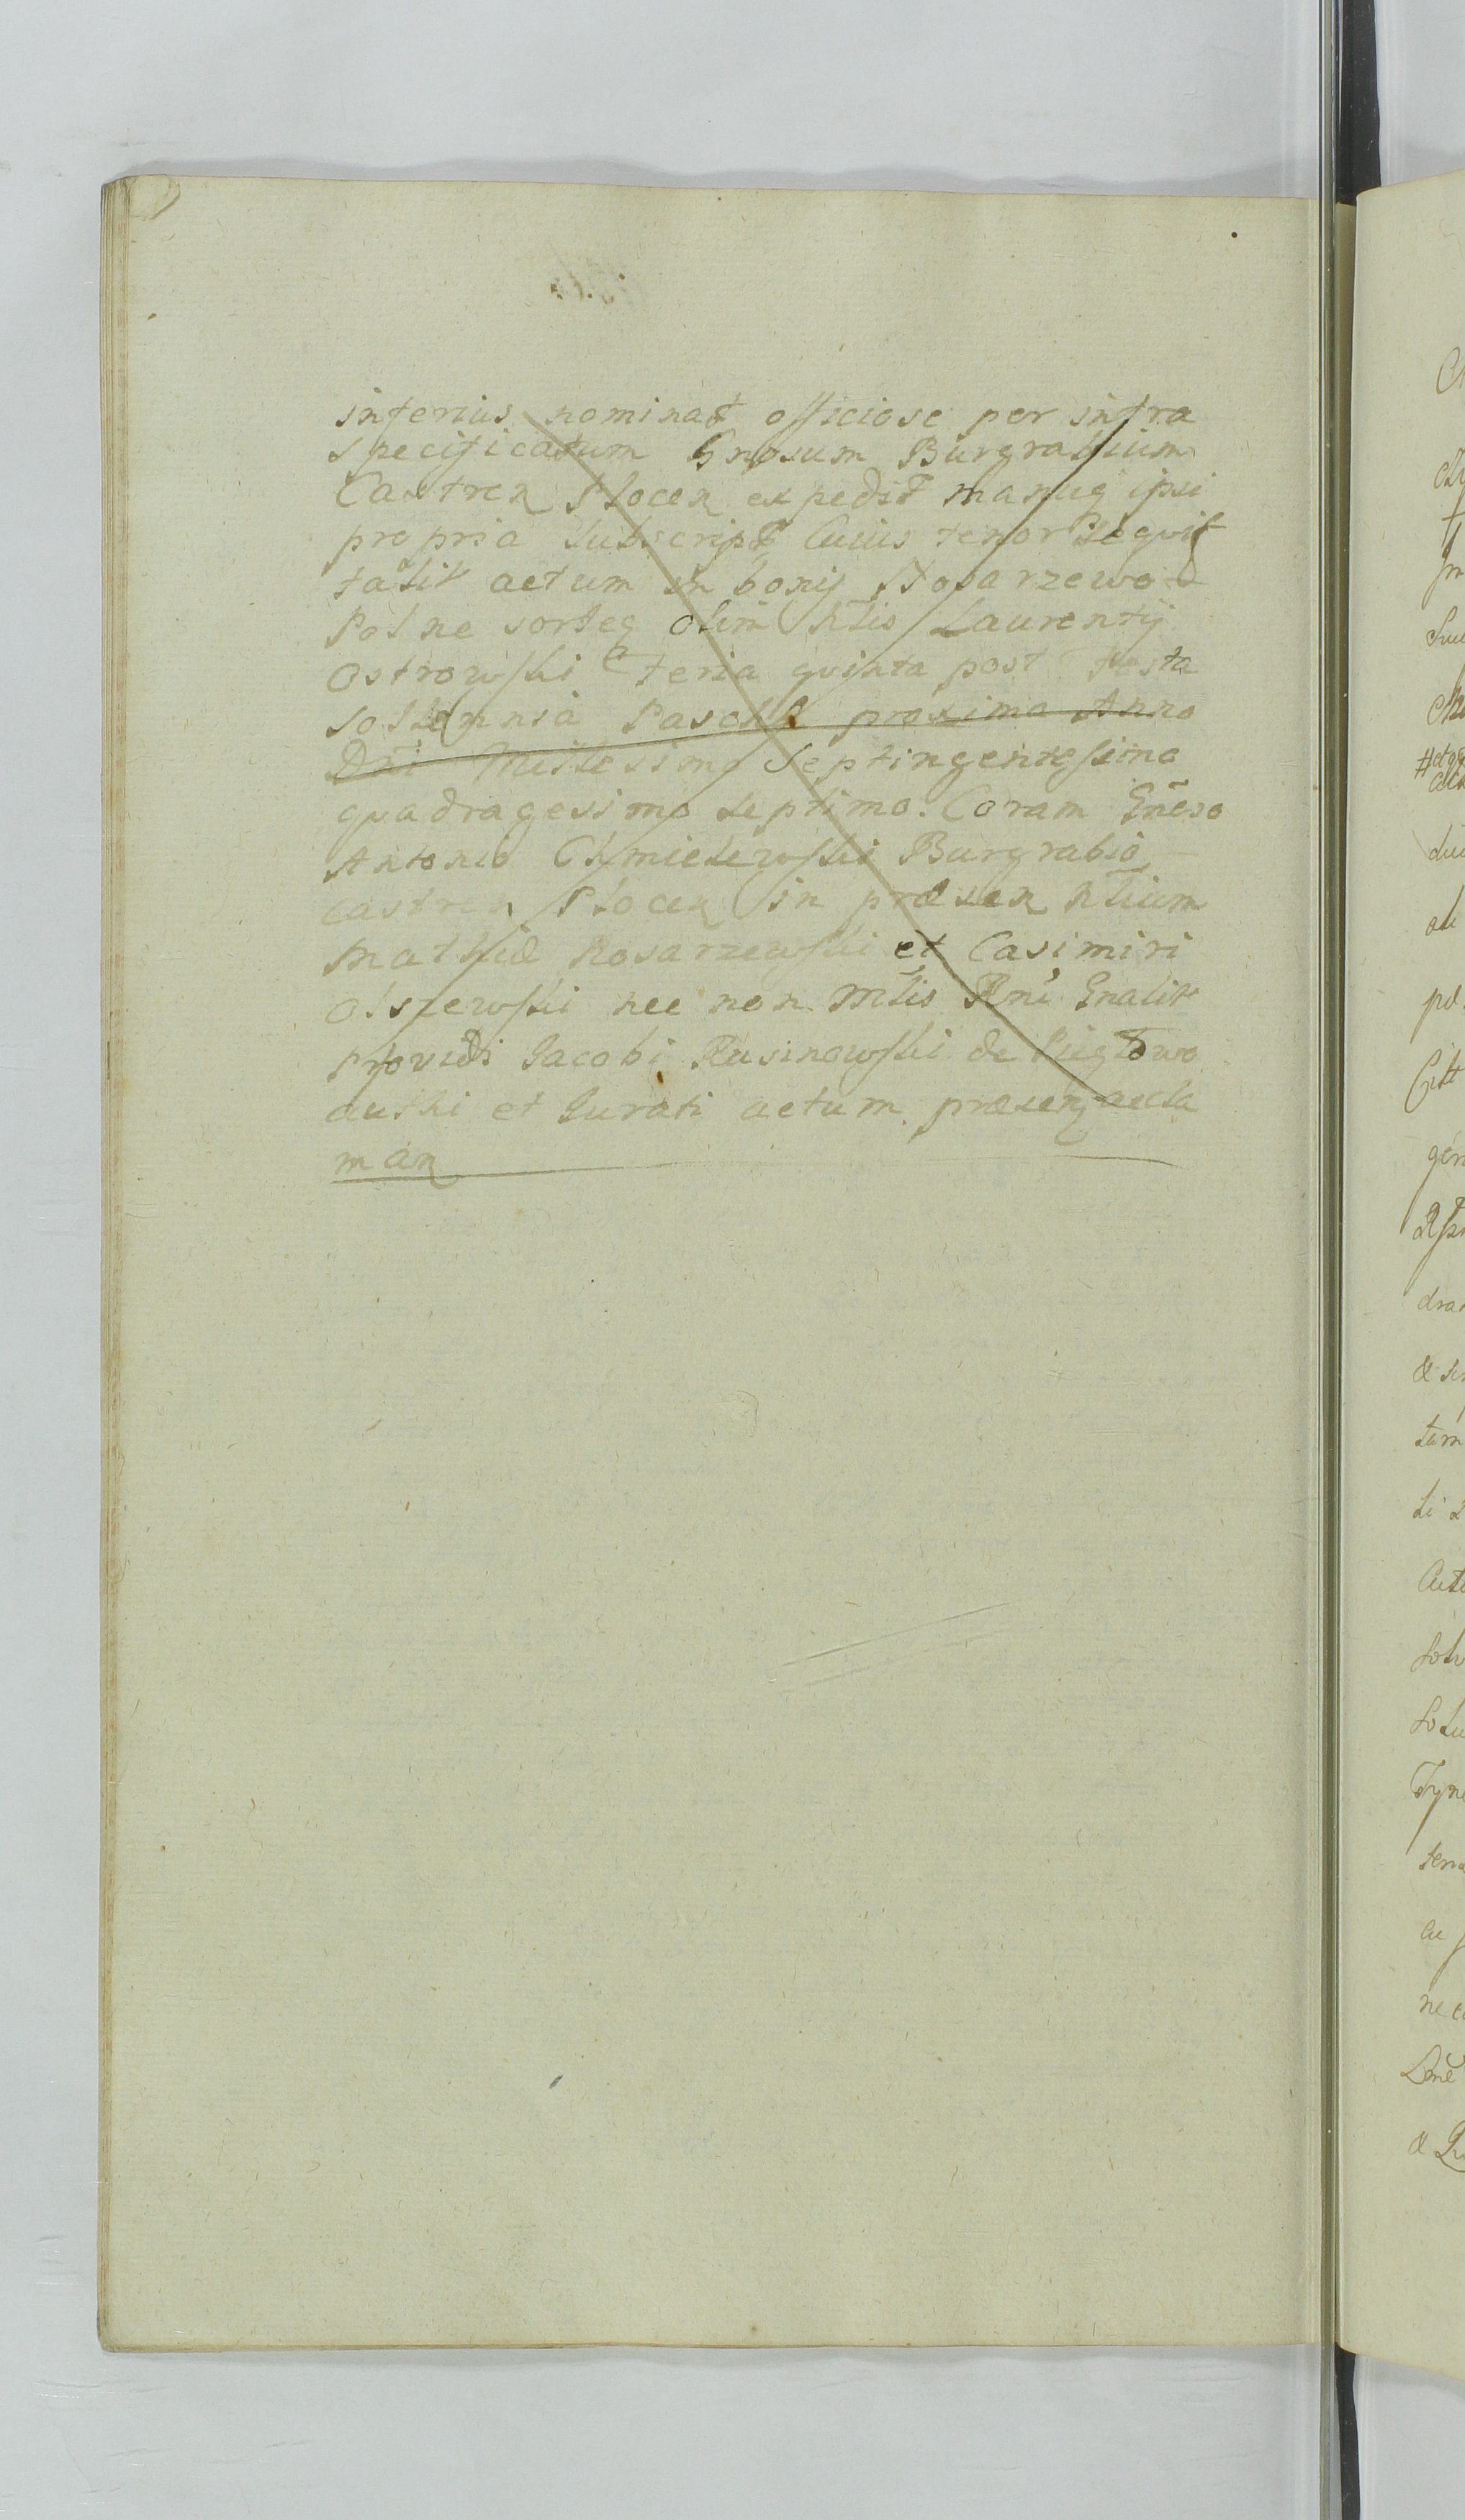 inferius nominat officiose per infra
specificatum Gnosum Burgrabium
Castren Plocen expedit manuq ipsi
propria Subscript Cuius tenor Sequit
talit actum in bonis Nosarzewo
Polne sorteq olim Nlis Laurentij
Ostrowski feria quinta post Festa
Sollemnia Paschæ proxima Anno
Dni Millesimo Septingentesimo
quadragesimo Septimo. Coram Gneso
Antonio Chmielewski Burgrabio
castren Plocen in præsen Nlium
Mathiæ Nosarzewski et Casimiri
Olszewski nec non Mlis Rni Gnalit
providi Jacobi Rusinowski de
et Jurati actum præsen accla
man